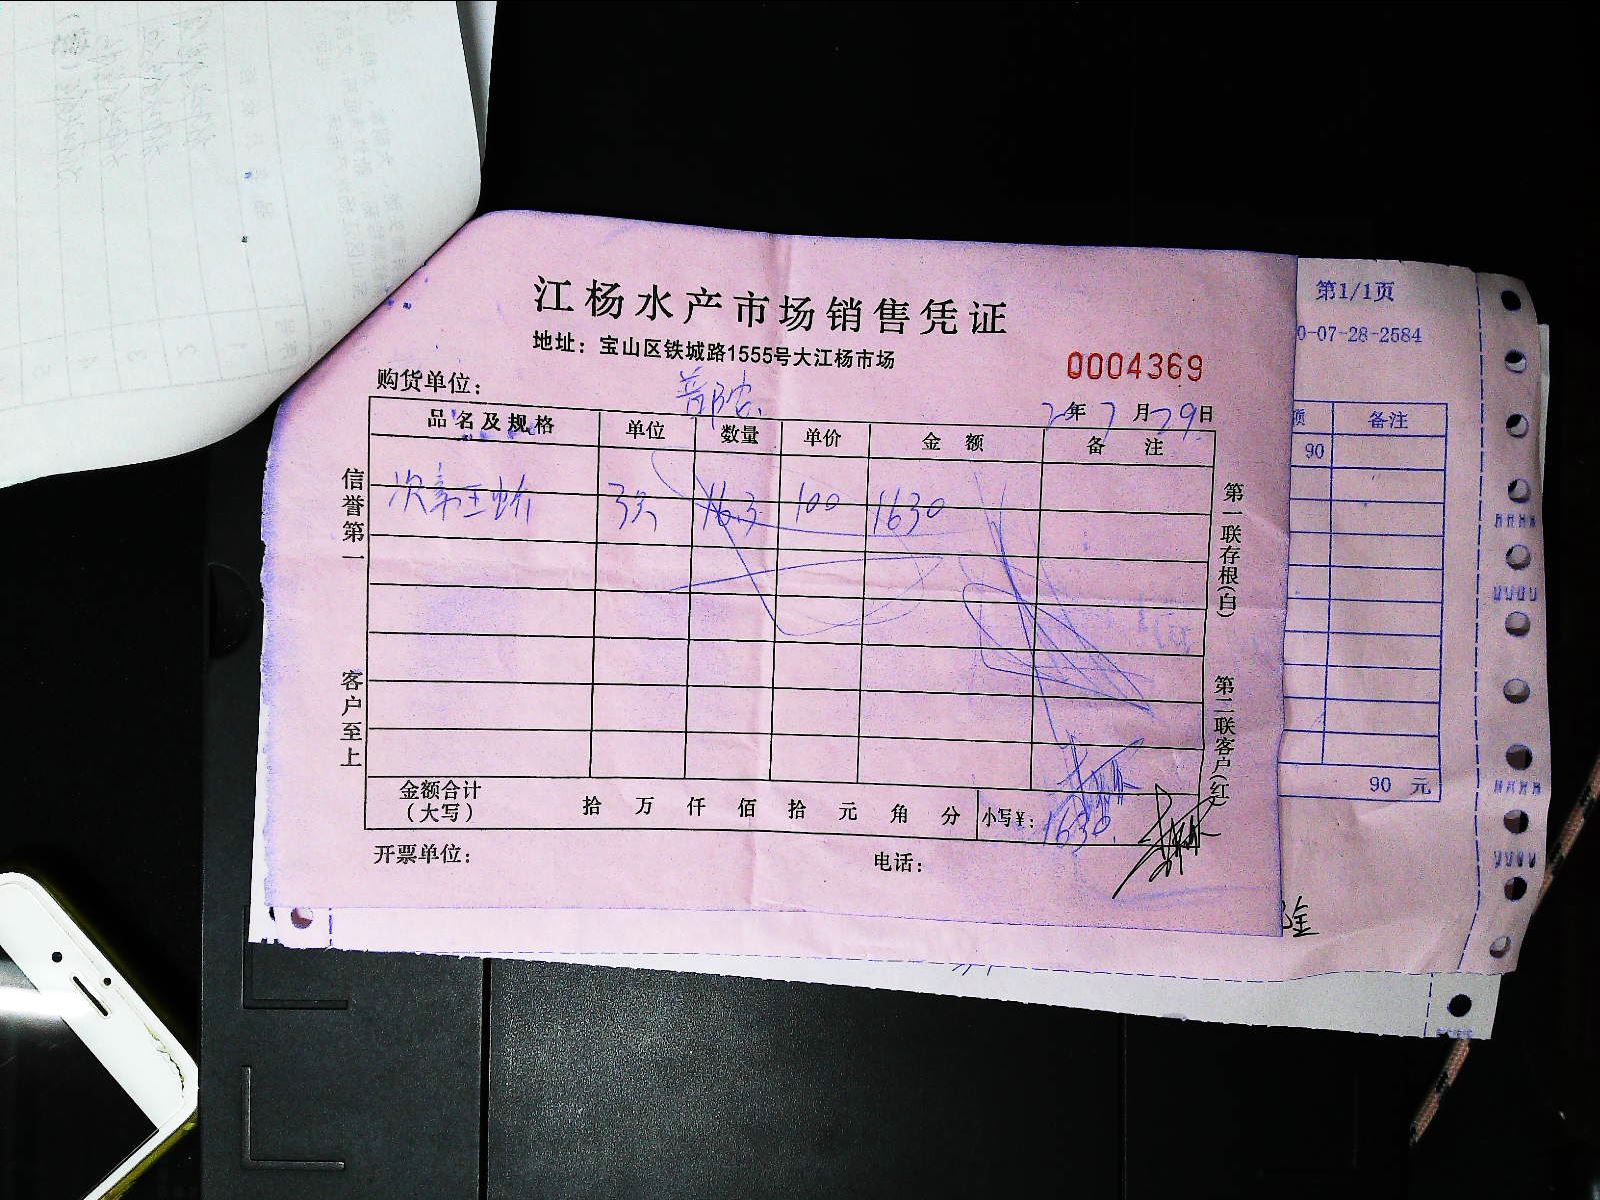 江杨水产市场销售凭证
地址：宝山区铁城路1555号大江杨市场
0004369
购货单位：
2年7月29日
品名及规格 单位 数量 单价 金额 备注
16.3 100 1630
金额合计（大写） 拾 万 仟 佰 拾 元 角 分 小写¥：1630.
开票单位： 电话：
信誉第一
客户至上
第一联存根(白)
第二联客户(红)
第1/1页
0-07-28-2584
额 备注
90
90 元